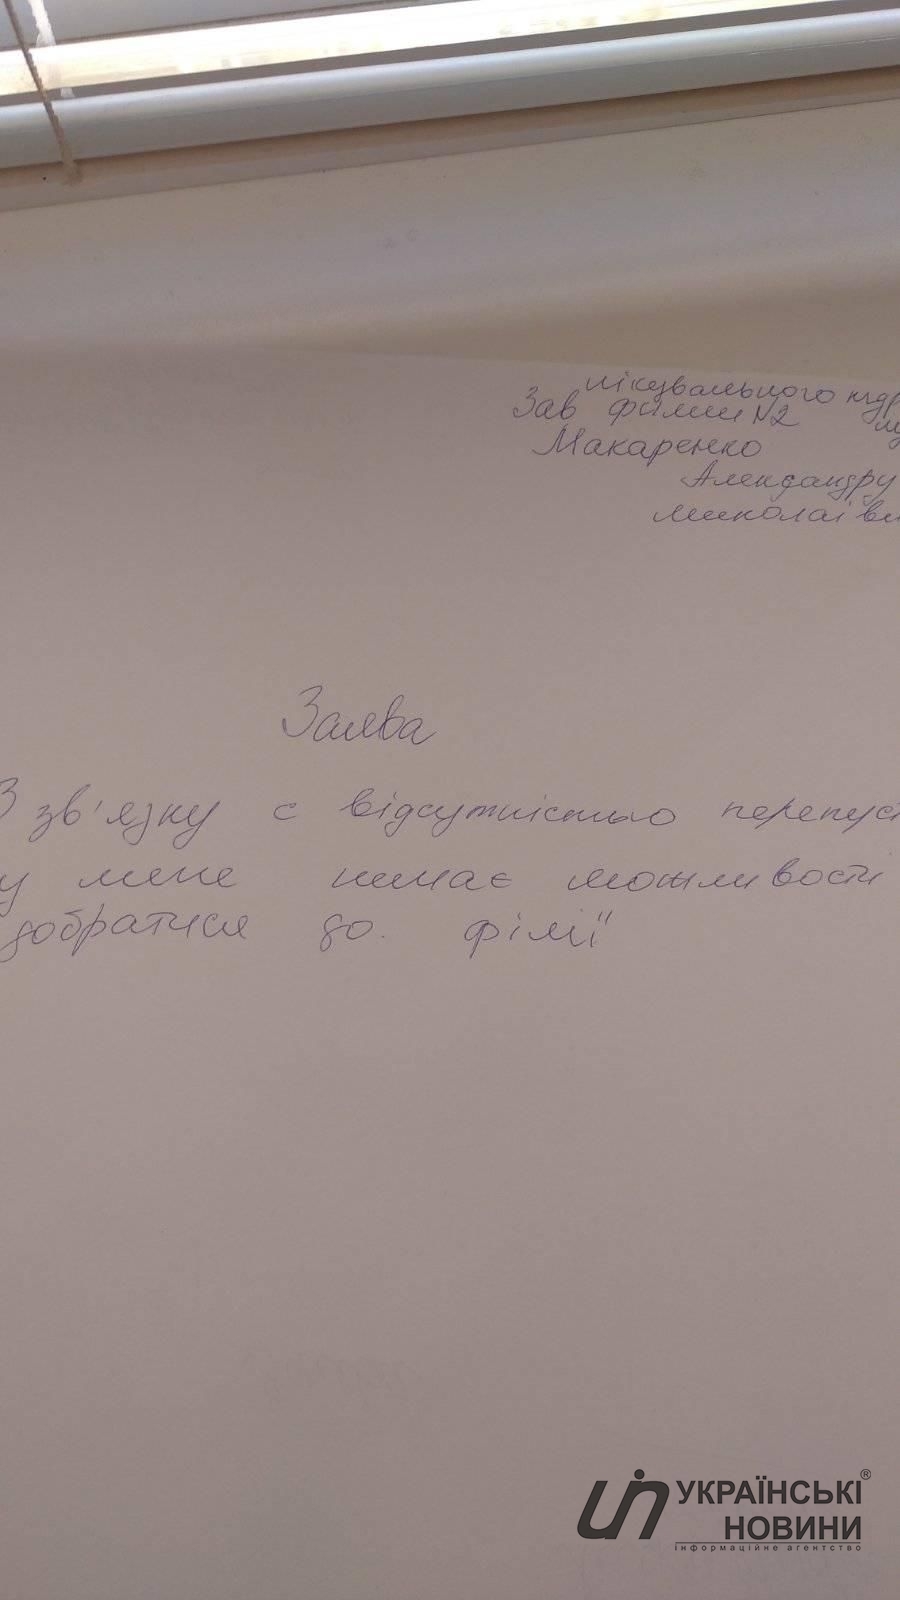 лікувального підр
Зав філии №2
Макаренко
Александру
Миколаїви
Заява
З зв'язку с відсутністью перепус
у мене немає можливості
добратися до. філії
УКРАЇНСЬКІ®
НОВИНИ
інформаційне агентство